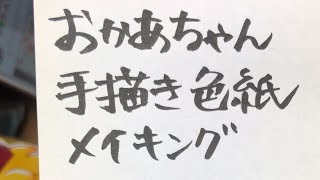 おかあちゃん
手描き色紙
メイキング